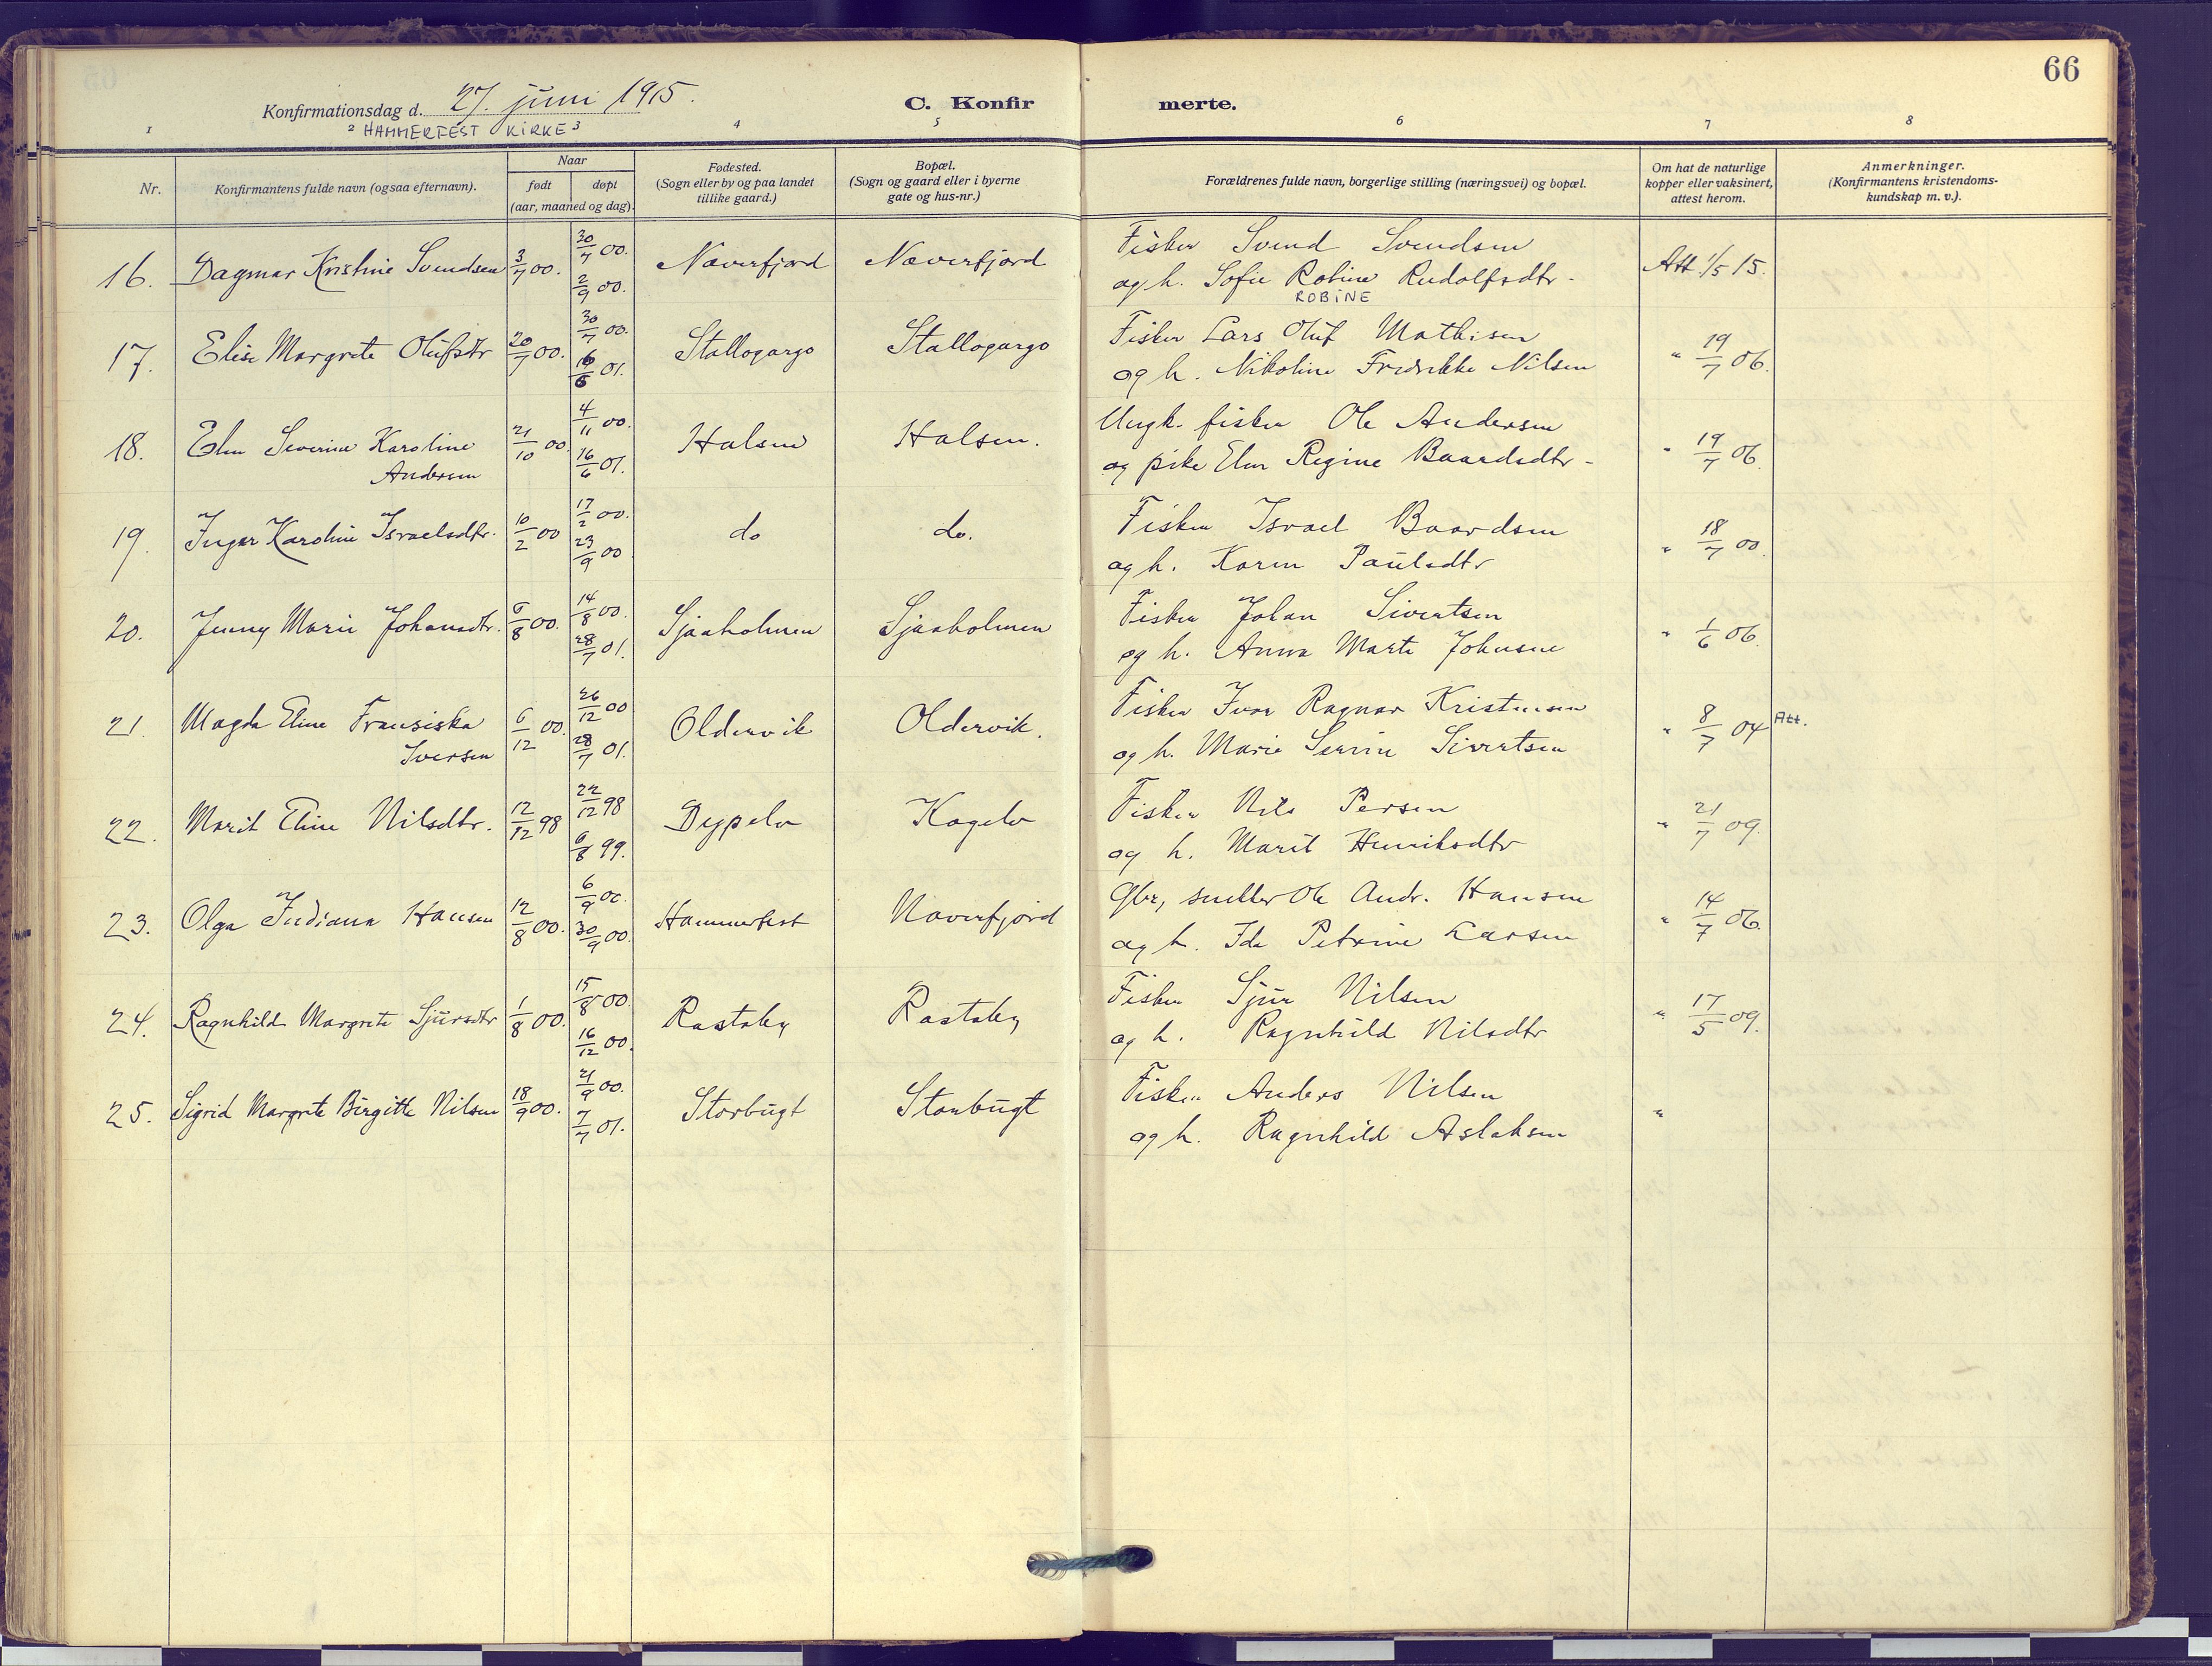 66
Konfirmationsdag d. 27. juni 1915.
C. Konfirmerte.
HAMMERFEST KIRKE
1 2 3 4 5 6 7 8
Nr.
Konfirmantens fulde navn (ogsaa efternavn).
Naar
født
døpt
(aar, maaned og dag).
Fødested.
(Sogn eller by og paa landet
tillike gaard.)
Bopæl.
(Sogn og gaard eller i byerne
gate og hus-nr.)
Forældrenes fulde navn, borgerlige stilling (næringsvei) og bopæl.
Om hat de naturlige
kopper eller vaksinert,
attest herom.
Anmerkninger.
(Konfirmantens kristendoms-
kundskap m. v.).
16. Dagmar Kristine Svendsen 3/7 00. 30/7 00. 2/9 00. Næverfjord Næverfjord
Fisker Svend Svendsen
og h. Sofie Robine Rudolfsdtr - Att 1/5 15.
ROBINE
17. Elise Margrete Olufsdtr 20/7 00. 30/7 00. 16/6 01. Stallogargo Stallogargo
Fisker Lars Oluf Mathisen
og h. Nikoline Fredrikke Nilsen " 19/7 06.
18. Elen Severine Karoline 21/10 00 4/11 00. 16/6 01. Halsen Halsen.
Andersen
Ungk. fisker Ole Andersen
og pike Elen Regine Baardsdtr - " 19/7 06.
19. Inger Karoline Israelsdtr. 10/2 00 17/2 00. 23/9 00 do do.
Fisker Israel Baardsen
og h. Karen Paulsdtr " 18/7 00.
20. Jenny Marie Johansdtr. 6/8 00. 14/8 00. 28/7 01. Sjaaholmen Sjaaholmen
Fisker Johan Sivertsen
og h. Anna Marte Johnsen " 1/6 06.
21. Magda Eline Fransiska 6/12 00. 26/12 00 28/7 01. Oldervik Oldervik.
Iversen
Fisker Ivar Ragnar Kristensen
og h. Marie Serine Sivertsen " 8/7 04 Att.
22. Marit Eline Nilsdtr. 12/12 98 22/12 98 6/8 99. Dypelv Kogelv
Fisker Nils Persen
og h. Marit Henriksdtr " 21/7 09.
23. Olga Indiana Hansen 12/8 00. 6/9 00. 30/9 00. Hammerfest Naverfjord
Gbr, sneller Ole Andr. Hansen
og h. Ida Petrine Larsen " 14/7 06.
24. Ragnhild Margrete Sjursdtr 1/8 00. 15/8 00. 16/12 00. Rastaby Rastaby
Fisker Sjur Nilsen
og h. Ragnhild Nilsdtr " 17/5 09.
25. Sigrid Margrete Birgitte Nilsen 18/9 00. 21/9 00. 7/7 01. Storbugt Storbugt
Fisker Anders Nilsen
og h. Ragnhild Aslaksen "